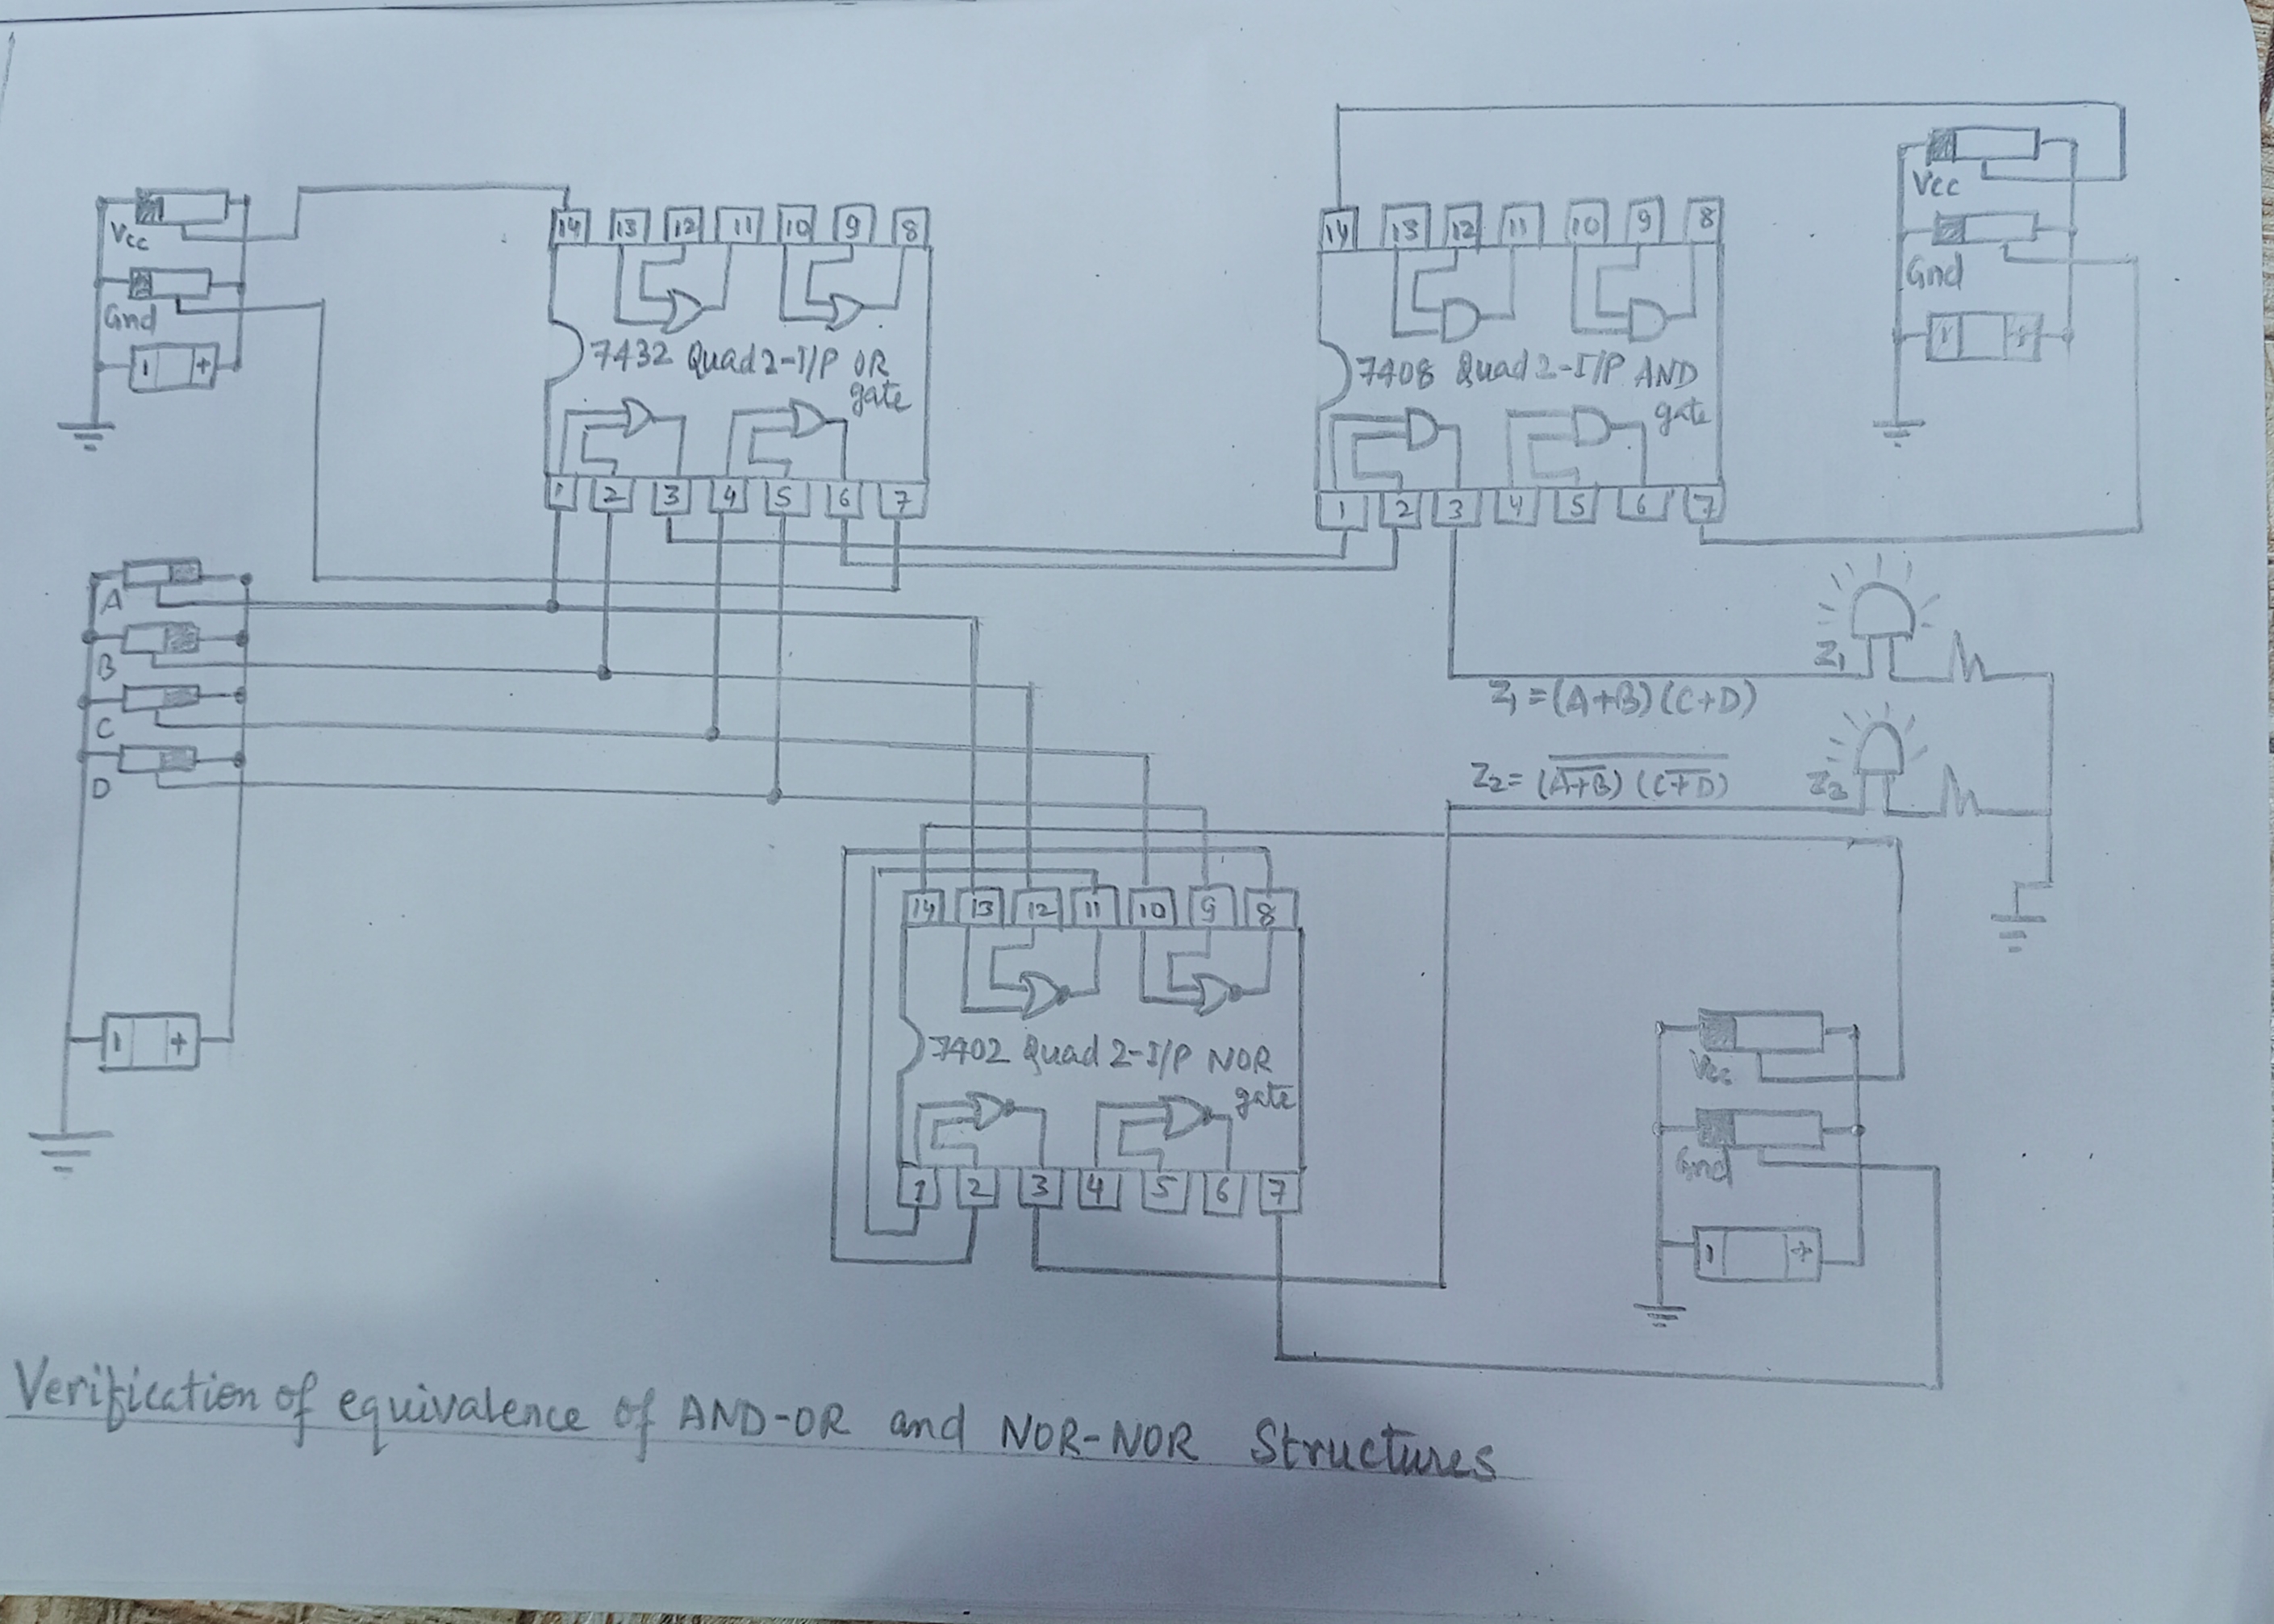 Vcc
Gnd
- +
14 13 12 11 10 9 8
7432 Quad 2-I/P OR
gate
1 2 3 4 5 6 7
14 13 12 11 10 9 8
7408 Quad 2-I/P AND
gate
1 2 3 4 5 6 7
Vcc
Gnd
- +
A
B
C
D
- +
Z₁
Z₁ = (A+B) (C+D)
Z₂ = \overline{(\overline{A+B}) (\overline{C+D})}
14 13 12 11 10 9 8
7402 Quad 2-I/P NOR
gate
1 2 3 4 5 6 7
Vcc
Gnd
- +
Verification of equivalence of AND-OR and NOR-NOR Structures